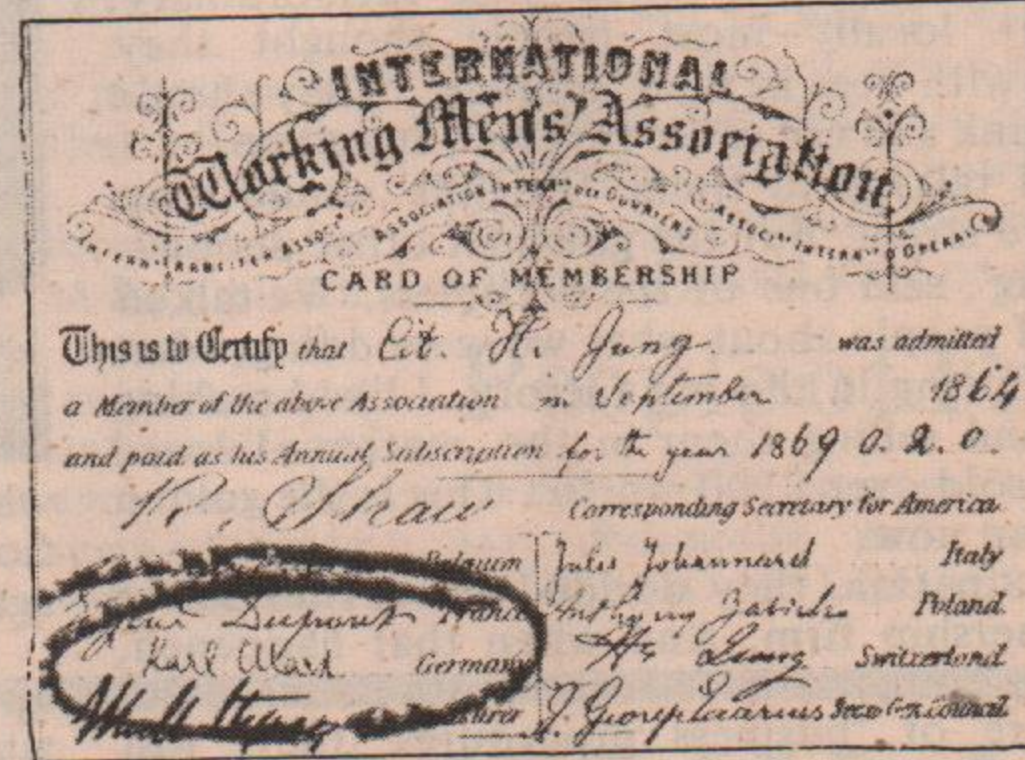 INTERNATIONAL
Working Men's Association
ASSOCIATION INTERN DES OUVRIERS
CARD OF MEMBERSHIP
This is to Certify that Cit. H. Jung was admitted
a Member of the above Association in September 1864
and paid as his Annual Subscription for the year 1869 0. 2. 0.
R. Shaw Corresponding Secretary for America
Belgium Jules Johannard Italy
Dupont France Anthony Zabicki Poland
Karl Marx Germany H. Jung Switzerland
J. George Eccarius